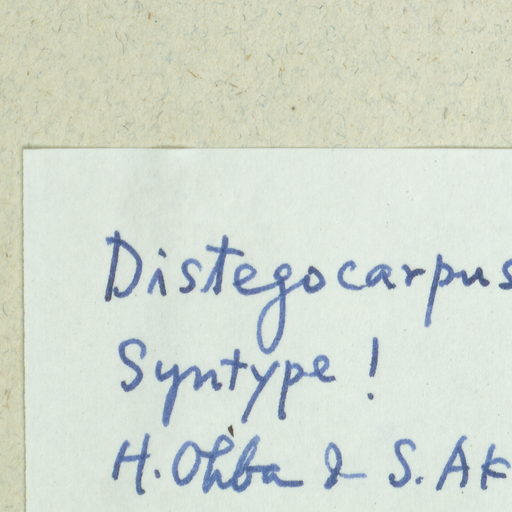 Distegocarpus
Syntype!
H. Ohba & S. Ak